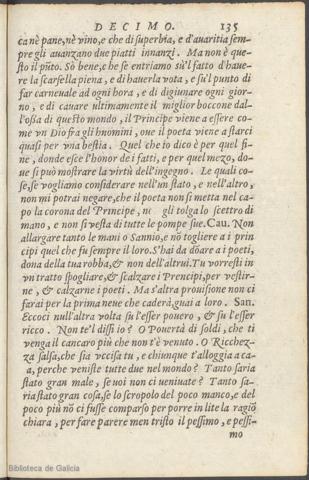 DECIMO. 135
ca nè pane, nè vino, e che di superbia, e d'avaritia sem-
pre gli auanzano due piatti innanzi. Ma non è que-
sto il pũto. Sò bene, che se entriamo sù'l fatto d'haue-
re la scarsella piena, e di hauerla vota, e sù'l punto di
far carneuale ad ogni hora, e di digiunare ogni gior-
no, e di cauare ultimamente il miglior boccone dal-
l'ossa di questo mondo, il Principe viene a essere co-
me vn Dio fra gli huomini, oue il poeta viene a starci
quasi per vna bestia. Quel che io dico è per quel fi-
ne, donde esce l'honor de i fatti, e per quel mezo, do-
ue si può mostrare la virtù dell'ingegno. Le quali co-
se, se vogliamo considerare nell'un stato, e nell'altro,
non mi potrai negare, che il poeta non si metta nel ca-
po la corona del Prencipe, n gli tolga lo scettro di
mano, e non si vesta di tutte le pompe sue. Cau. Non
allargare tanto le mani o Sannio, e nõ togliere a i prin
cipi quel che fu sempre il loro. S'hai da dõare a i poeti,
dona della tua robba, & non dell'altrui. Tu vorresti in
vn tratto spogliare, & scalzare i Prencipi, per vestir-
ne, & calzarne i poeti. Ma s'altra prouisione non ci
farai per la prima neue che caderà, guai a loro. San.
Eccoci null'altra volta su l'esser pouero, & su l'esser
ricco. Non te'l dissi io? O Pouertà di soldi, che ti
venga il cancaro più che non t'è venuto. O Ricchez-
za salsa, che sia vccisa tu, e chiunque t'alloggia a ca-
a, perche veniste tutte due nel mondo? Tanto saria
stato gran male, se uoi non ci ueniuate? Tanto sa-
ria stato gran cosa, se lo scropolo del poco manco, e del
poco più nõ ci fusse comparso per porre in lite la ragiõ
chiara, per fare parere men tristo il pessimo, e pessi-
mo
Biblioteca de Galicia